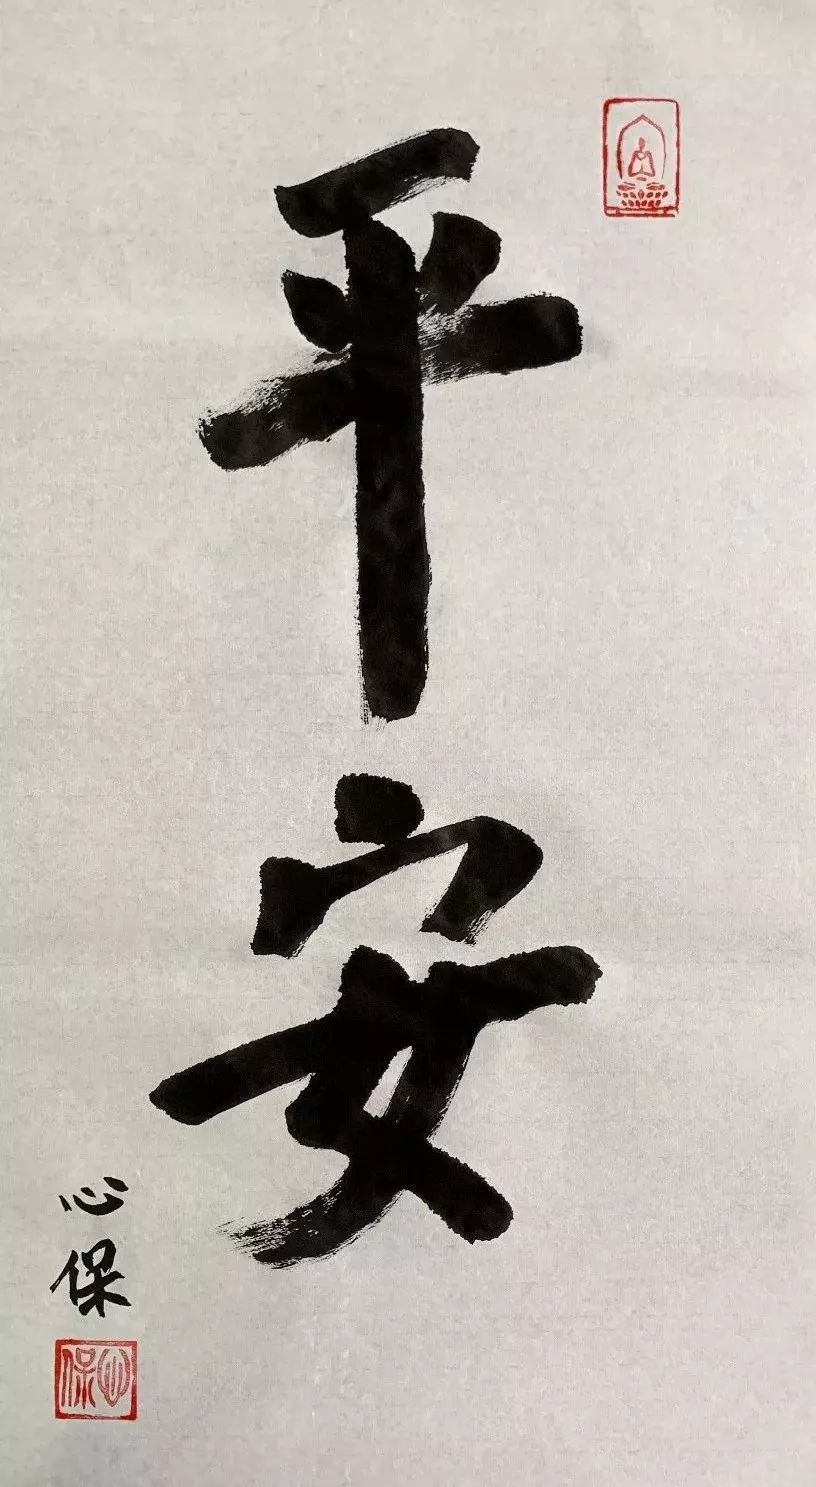 平安
心保
心保